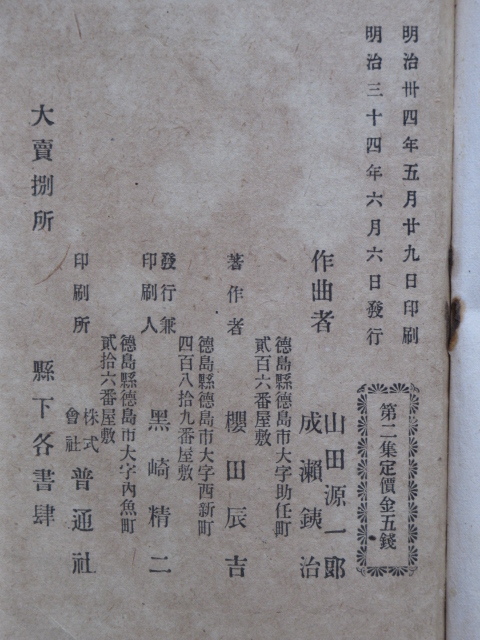 明治卅四年五月廿九日印刷
明治三十四年六月六日發行
第二集定價金五錢
作曲者
山田源一郎
成瀬銕治
德島縣德島市大字助任町
貳百六番屋敷
著作者
櫻田辰吉
德島縣德島市大字西新町
四百八拾九番屋敷
發行兼
印刷人
黑崎精二
德島縣德島市大字內魚町
貳拾六番屋敷
印刷所
株式
會社
普通社
大賣捌所
縣下各書肆